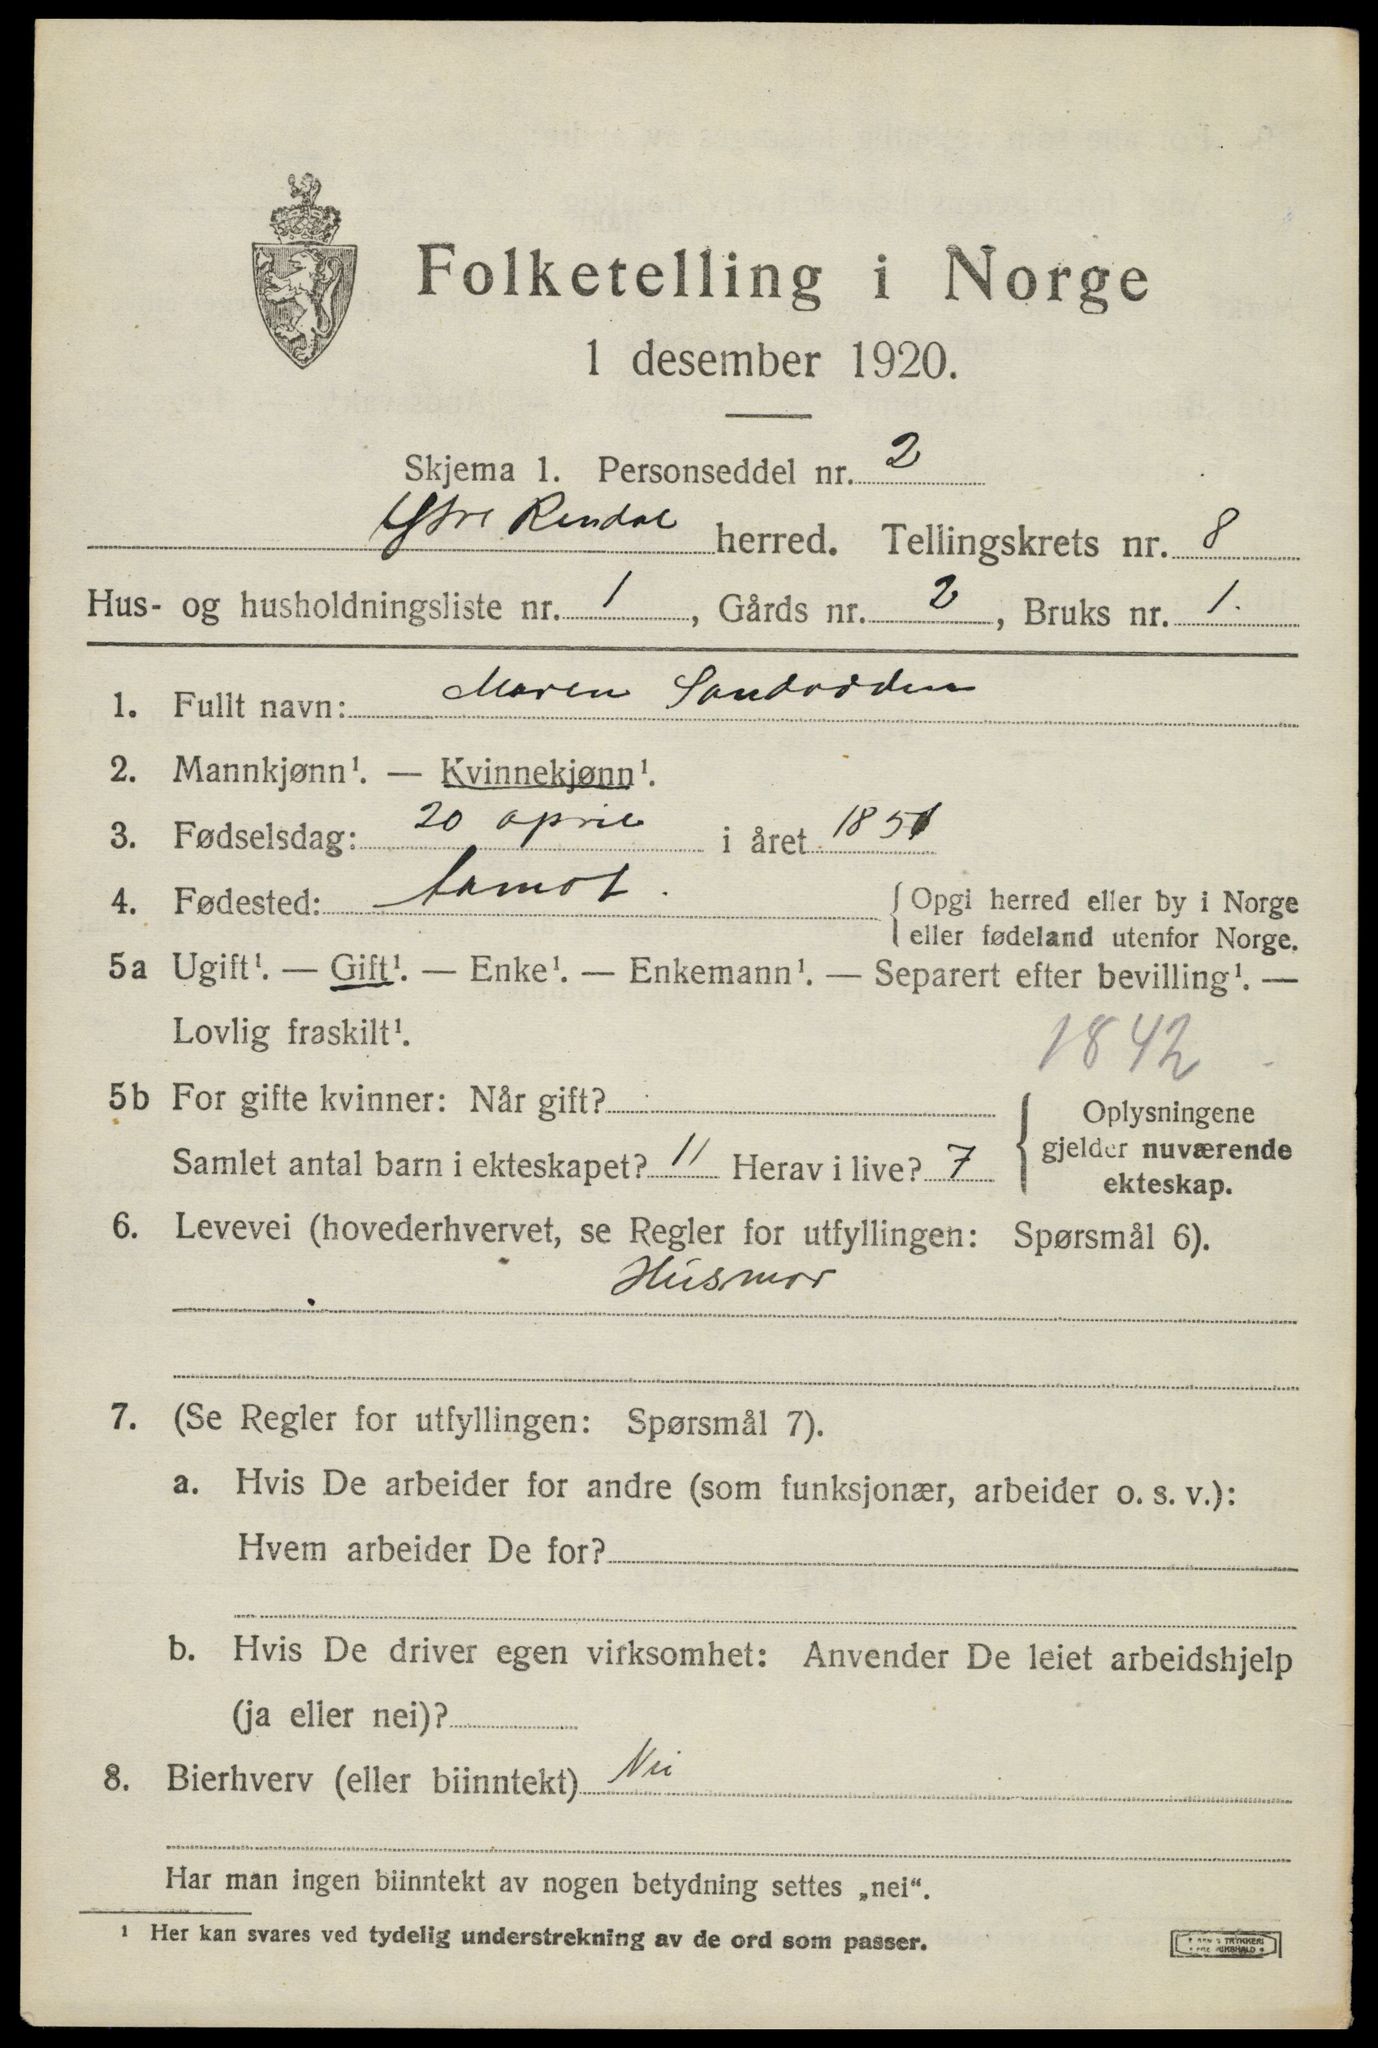 Folketelling i Norge
1 desember 1920.
Skjema 1. Personseddel nr. 2
Ytre Rendal herred. Tellingskrets nr. 8
Hus- og husholdningsliste nr. 1, Gårds nr. 2, Bruks nr. 1.
1. Fullt navn: Maren Sandodden
2. Mannkjønn¹. — Kvinnekjønn¹.
3. Fødselsdag: 20 april i året 1851
4. Fødested: Aamot. { Opgi herred eller by i Norge
eller fødeland utenfor Norge.
5a Ugift¹. — Gift¹. — Enke¹. — Enkemann¹. — Separert efter bevilling¹. —
Lovlig fraskilt¹.
1842
5b For gifte kvinner: Når gift?
Samlet antal barn i ekteskapet? 11 Herav i live? 7
{ Oplysningene
gjelder nuværende
ekteskap.
6. Levevei (hovederhvervet, se Regler for utfyllingen: Spørsmål 6).
Husmor
7. (Se Regler for utfyllingen: Spørsmål 7).
a. Hvis De arbeider for andre (som funksjonær, arbeider o. s. v.):
Hvem arbeider De for?
b. Hvis De driver egen virksomhet: Anvender De leiet arbeidshjelp
(ja eller nei)?
8. Bierhverv (eller biinntekt) Nei
Har man ingen biinntekt av nogen betydning settes „nei“.
¹ Her kan svares ved tydelig understrekning av de ord som passer.